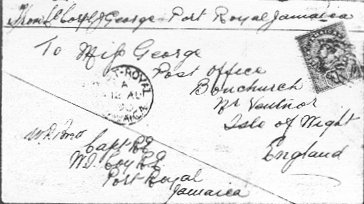 From Corpl J George Port Royal Jamaica
To Miss George
Post Office
Bonchurch
Nr Ventnor
Isle of Wight
England
T-ROYAL
A
AU
Capt RE
W.I. Coy RE
Port Royal
Jamaica